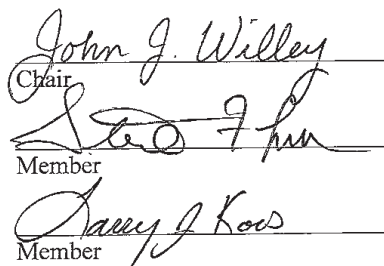 John J. Willey
Chair
Member
Larry J Koos
Member